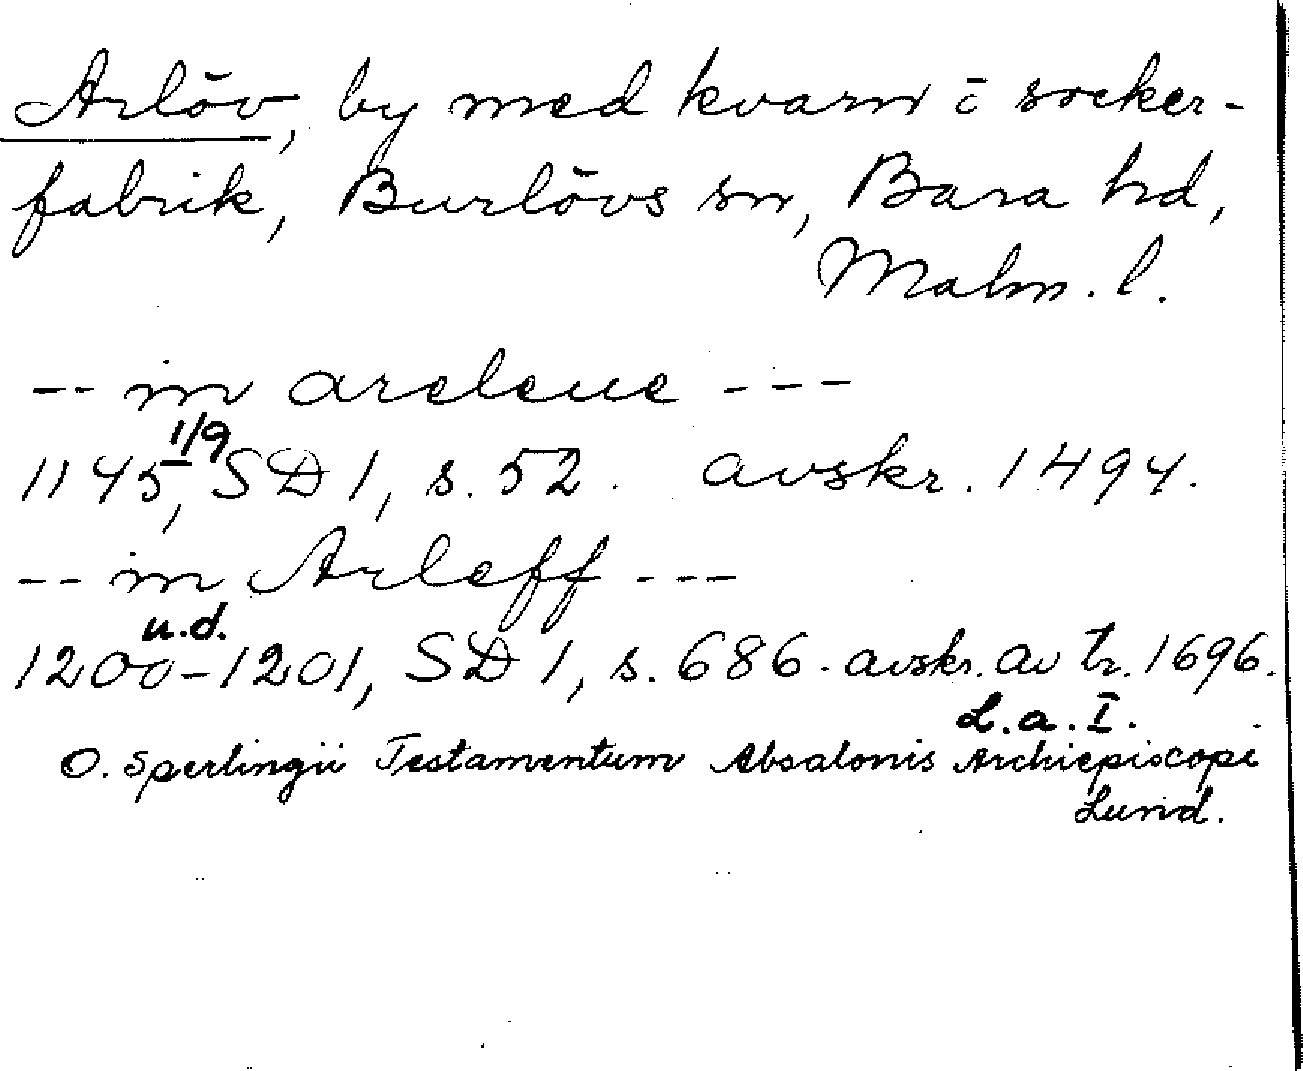 Arlöv, by med kvarn o socker-
fabrik, Burlövs sn, Bara hd,
Malm. l.
-- in areleue ---
1/9
1145, SD 1, s. 52. avskr. 1494.
-- in Arleff ---
u.d.
1200-1201, SD 1, s. 686. avskr. av tr. 1696.
L.a.I.
O. Sperlingii Testamentum Absalonis Archiepiscopi
Lund.